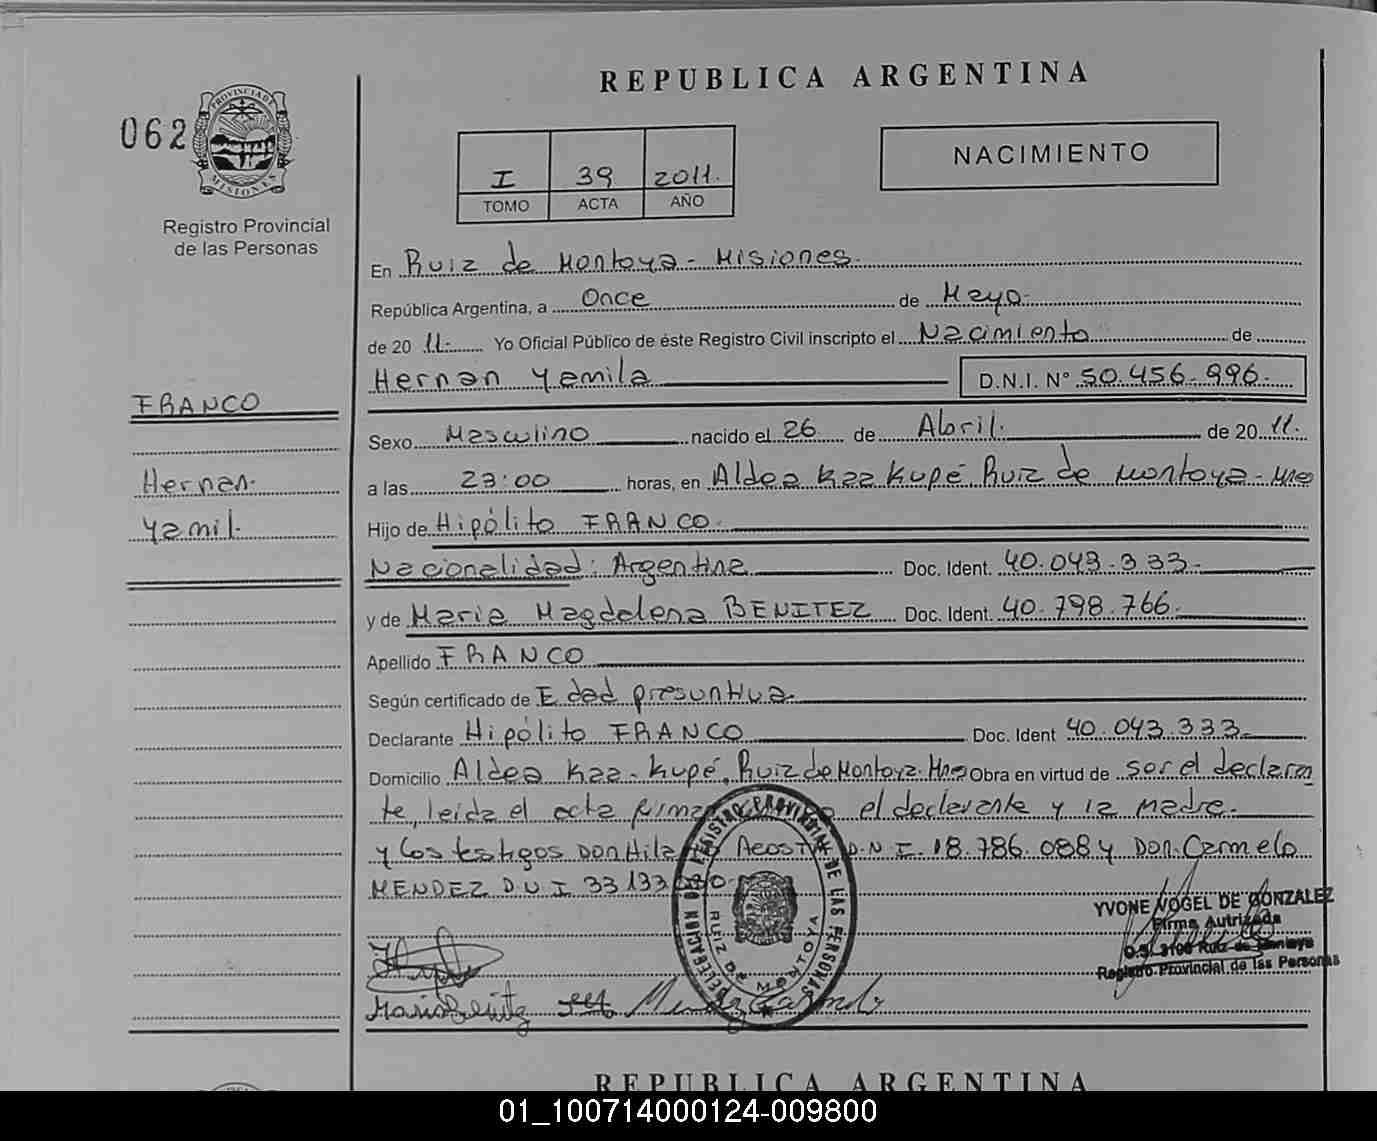 REPUBLICA ARGENTINA
062
PROVINCIA DE
MISIONES
Registro Provincial
de las Personas
I 39 2011.
TOMO ACTA AÑO
NACIMIENTO
En Ruiz de Montoya - Misiones.
República Argentina, a Once de Mayo.
de 20 11. Yo Oficial Público de éste Registro Civil inscripto el Nacimiento de
Hernan Yamila D.N.I. N° 50.456.996.
FRANCO
Hernan.
Yamil.
Sexo Masculino nacido el 26 de Abril. de 20 11.
a las 23:00 horas, en Aldea Kaa Kupé Ruiz de Montoya - Mnes
Hijo de Hipólito FRANCO.
Nacionalidad: Argentina Doc. Ident. 40.043.333.
y de Maria Magdalena BENITEZ Doc. Ident. 40.798.766.
Apellido FRANCO
Según certificado de Edad presuntiva.
Declarante Hipólito FRANCO Doc. Ident 40.043.333.
Domicilio Aldea Kaa-Kupé, Ruiz de Montoya. Mnes Obra en virtud de ser el declaran
te, leida el acta el declarante y la madre.
y los testigos Don D.N.I. 18.786.088 y Don Carmelo
MENDEZ D.N.I 33133
DELEGACION DEL REGISTRO PROVINCIAL DE LAS PERSONAS
RUIZ DE MONTOYA
YVONE VOGEL DE GONZALEZ
Firma Autrizada
O.S. 3106 Ruiz de Montoya
Registro Provincial de las Personas
Maria Benitez
REPUBLICA ARGENTINA
01_100714000124-009800